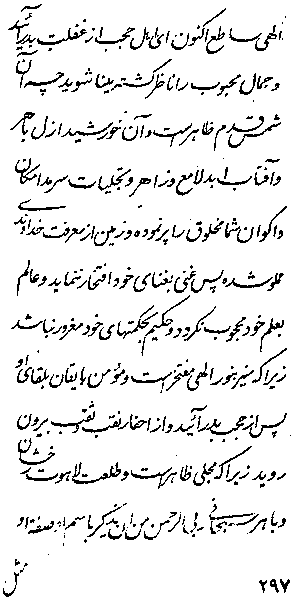 الهی ساطع اکنون ای اهل حجب از غفلت بدر آئید
و جمال محبوب را ناظر گشته بینا شوید چه آن
شمس قدم ظاهرست و آن خورشید ازل باهر
و آفتاب ابد لامع و زاهر و تجلیات سرمد امکان
و اکوان شما مخلوق را پر نموده و زمین از معرفت خداوندی
مملو شده پس غنی بغنای خود افتخار ننماید و عالم
بعلم خود محجوب نگردد و حکیم بحکمتهای خود مغرور نباشد
زیرا که منیر بنور الهی مفتخرست و مؤمن بایقان بلقای او
پس از حجب بدر آئید و از احفار نقب و ثقب بیرون
روید زیرا که مجلی ظاهرست و طلعت لاهوت رخشان
و باهر سبحانی ربی الرحمن من ان یذکر باسم او صفة او
مثل
۲۹۷